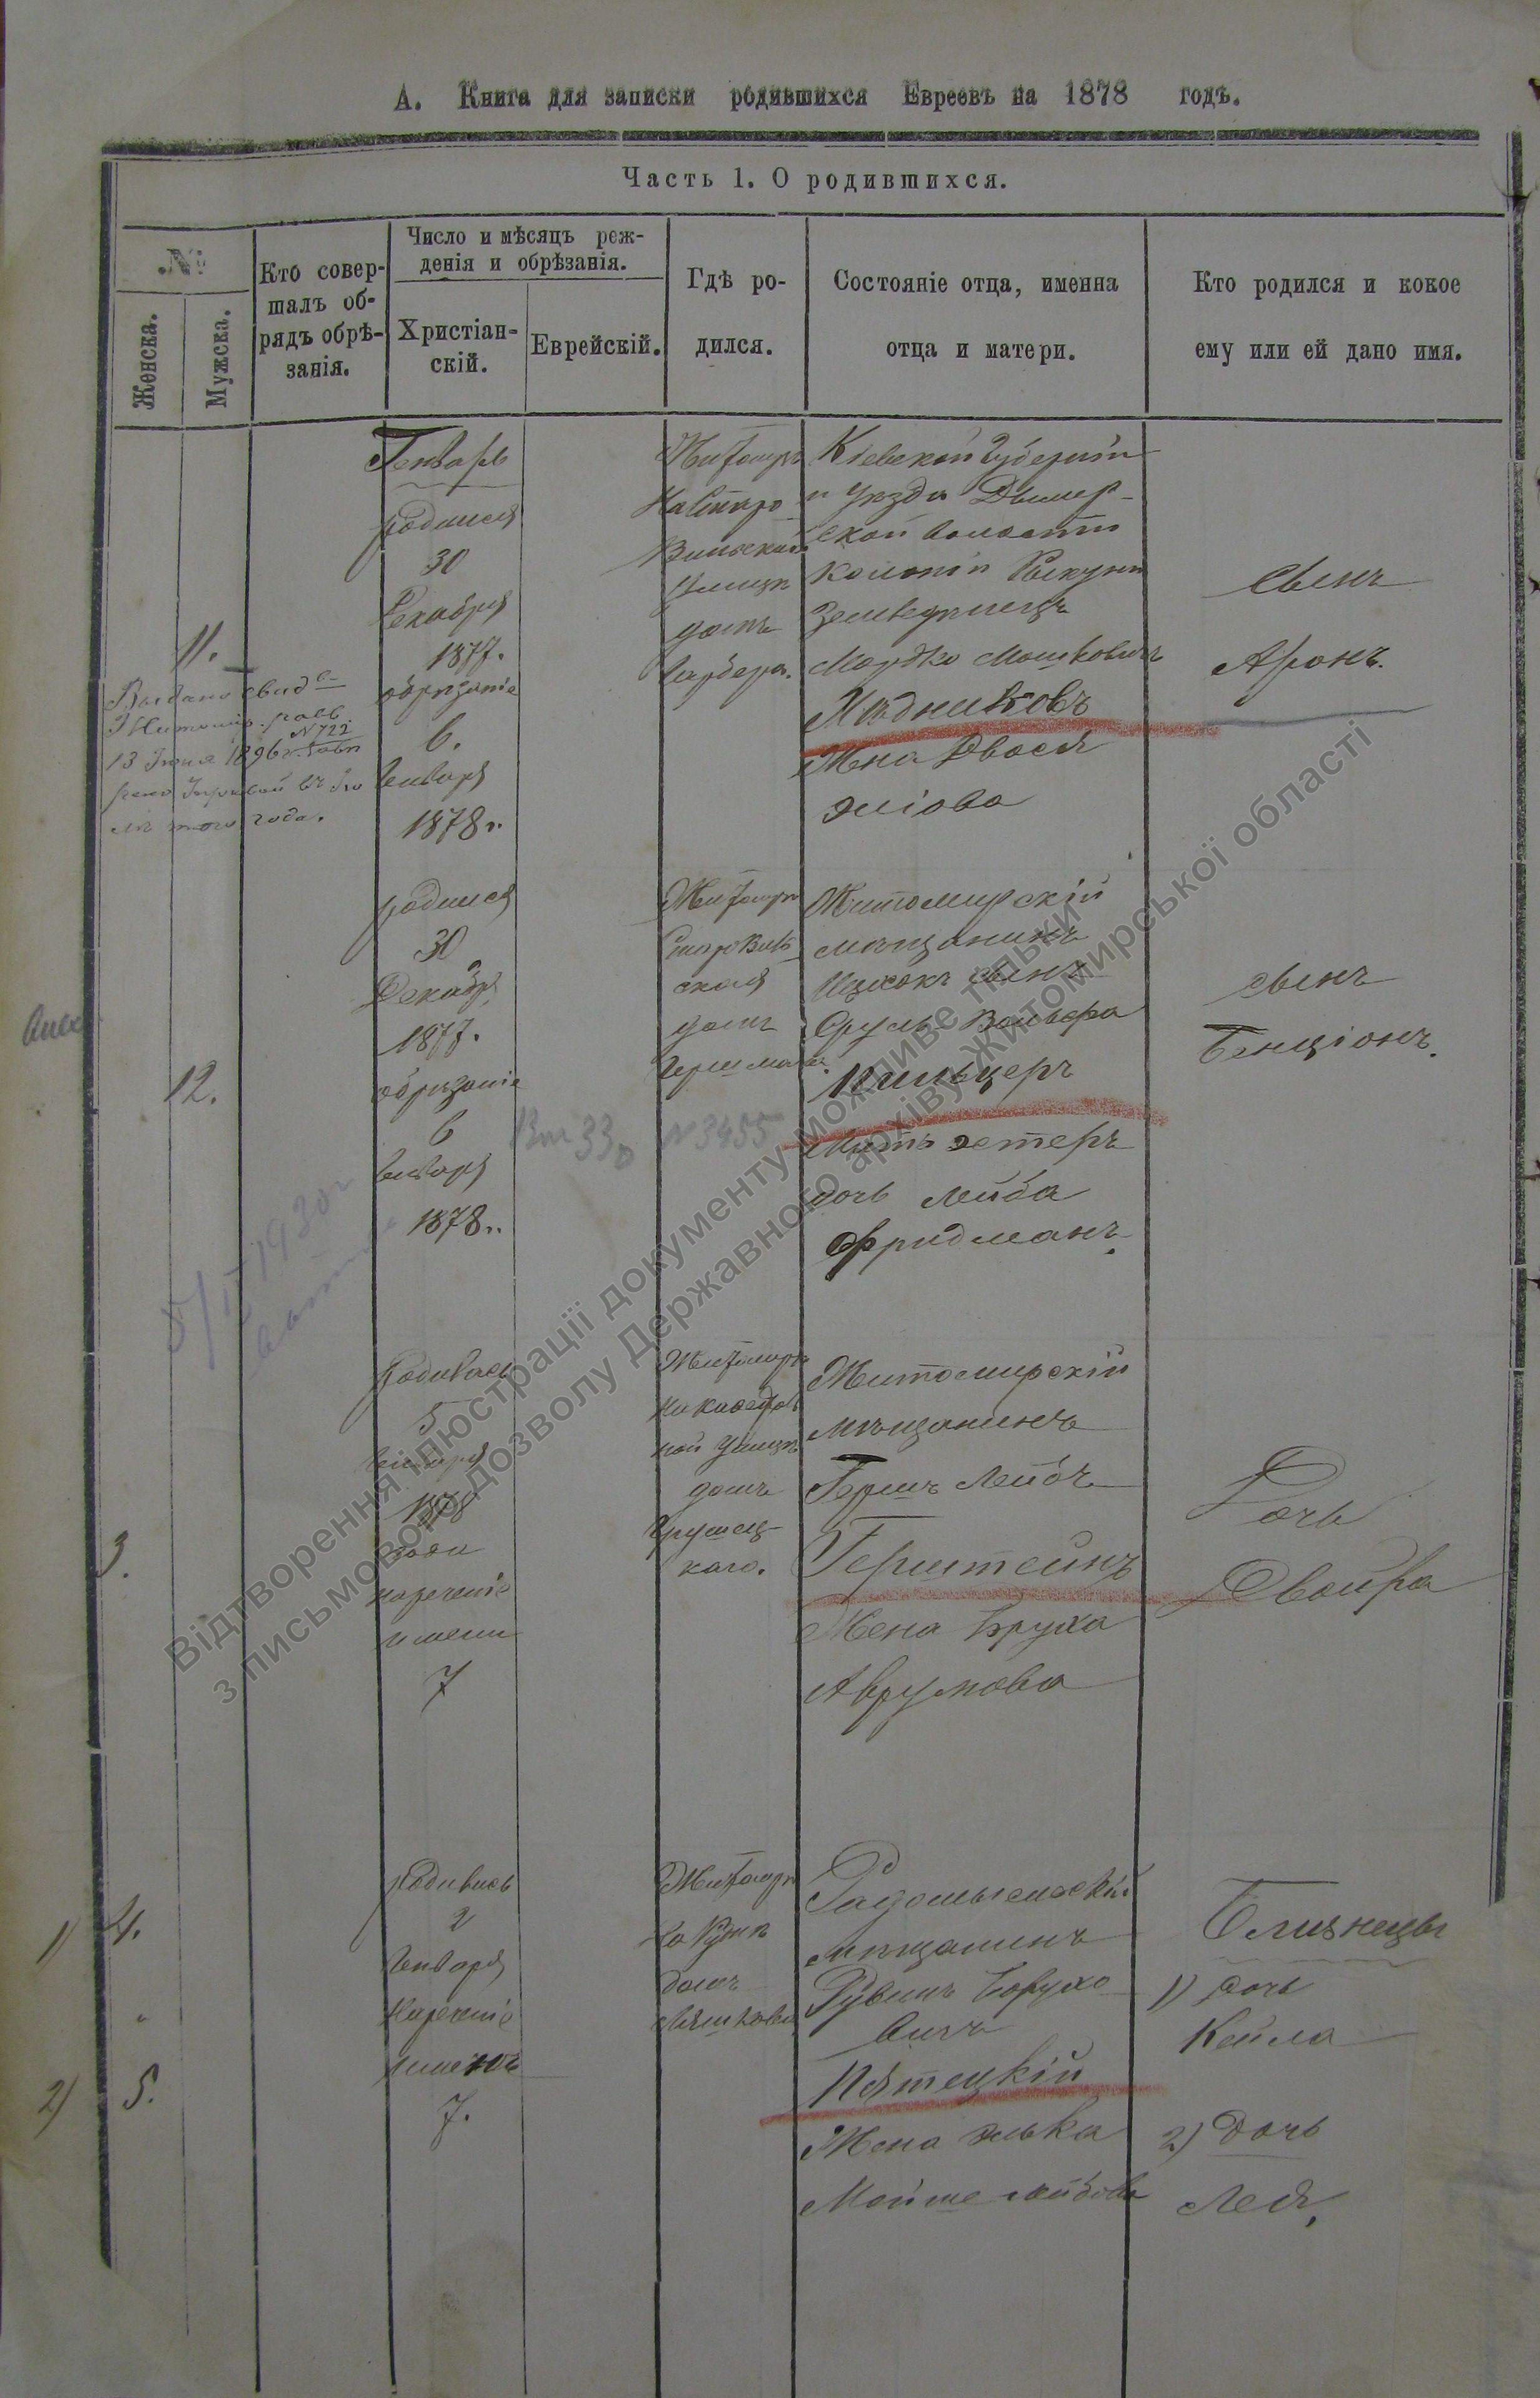 А. Книга для записки родившихся Евреевъ на 1878 годъ.
Часть 1. О родившихся.
№
Женска.
Мужска.
Кто совер-
шалъ об-
рядъ обрѣ-
занія.
Число и мѣсяцъ реж-
денія и обрѣзанія.
Христіан-
скій.
Еврейскій.
Гдѣ ро-
дился.
Состояніе отца, именна
отца и матери.
Кто родился и кокое
ему или ей дано имя.
11.
Выдано свид
13 1896
этого года.
Генварь
родился
30
Декабря
1877.
обрѣзаніе
6.
Генваря
1878 г.
Житомиръ
улицѣ
домъ
Кіевской Губерніи
и уѣзда Дымер-
ской волости
колоніи
Земледѣлецъ
Мордко Мошковичъ
Мѣдниковъ
Жена Двося
Эліова
Сынъ
Аронъ.
12.
родился
30
Декабр
1877.
обрѣзаніе
6
Генваря
1878 г.
№ 3455
Житомиръ
Старовиль
ская
домъ
Гершмана
Житомирскій
мѣщанинъ
Ицкокъ сынъ
Сруль Вольфа
Мильцеръ
Мать Эстеръ
дочь Лейба
Фридманъ.
сынъ
Бенціонъ.
3.
Родилась
5
Генваря
1878
года
нареченіе
имени
7
Житомиръ
на кафедраль
ной улицѣ
домъ
Грушец-
каго.
Житомирскій
мѣщанинъ
Гершъ Лейбъ
Герштейнъ
Жена Бруха
Аврумова
Дочь
Двойра
1) 4.
"
2) 5.
родилась
2
Генваря
Нареченіе
именъ
7.
Житомиръ
домъ
Радомысльскій
мѣщанинъ
Рувинъ Борухо
вичъ
Пятецкій
Жена Элька
Мойше Лейбова
Близнецы
1) дочь
Кейла
2) дочь
Лея.
Відтворення ілюстрації документу можливе тільки
з письмового дозволу Державного архіву Житомирської області